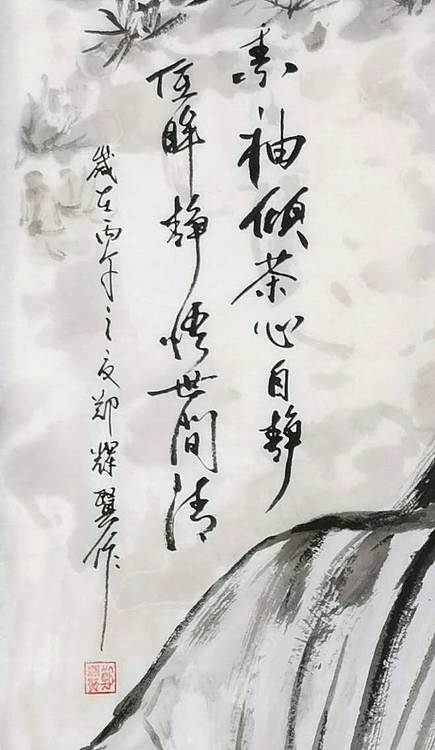 素袖倾茶心自静
低眸静悟世间清
歲在丙午之夏郑辉贤作